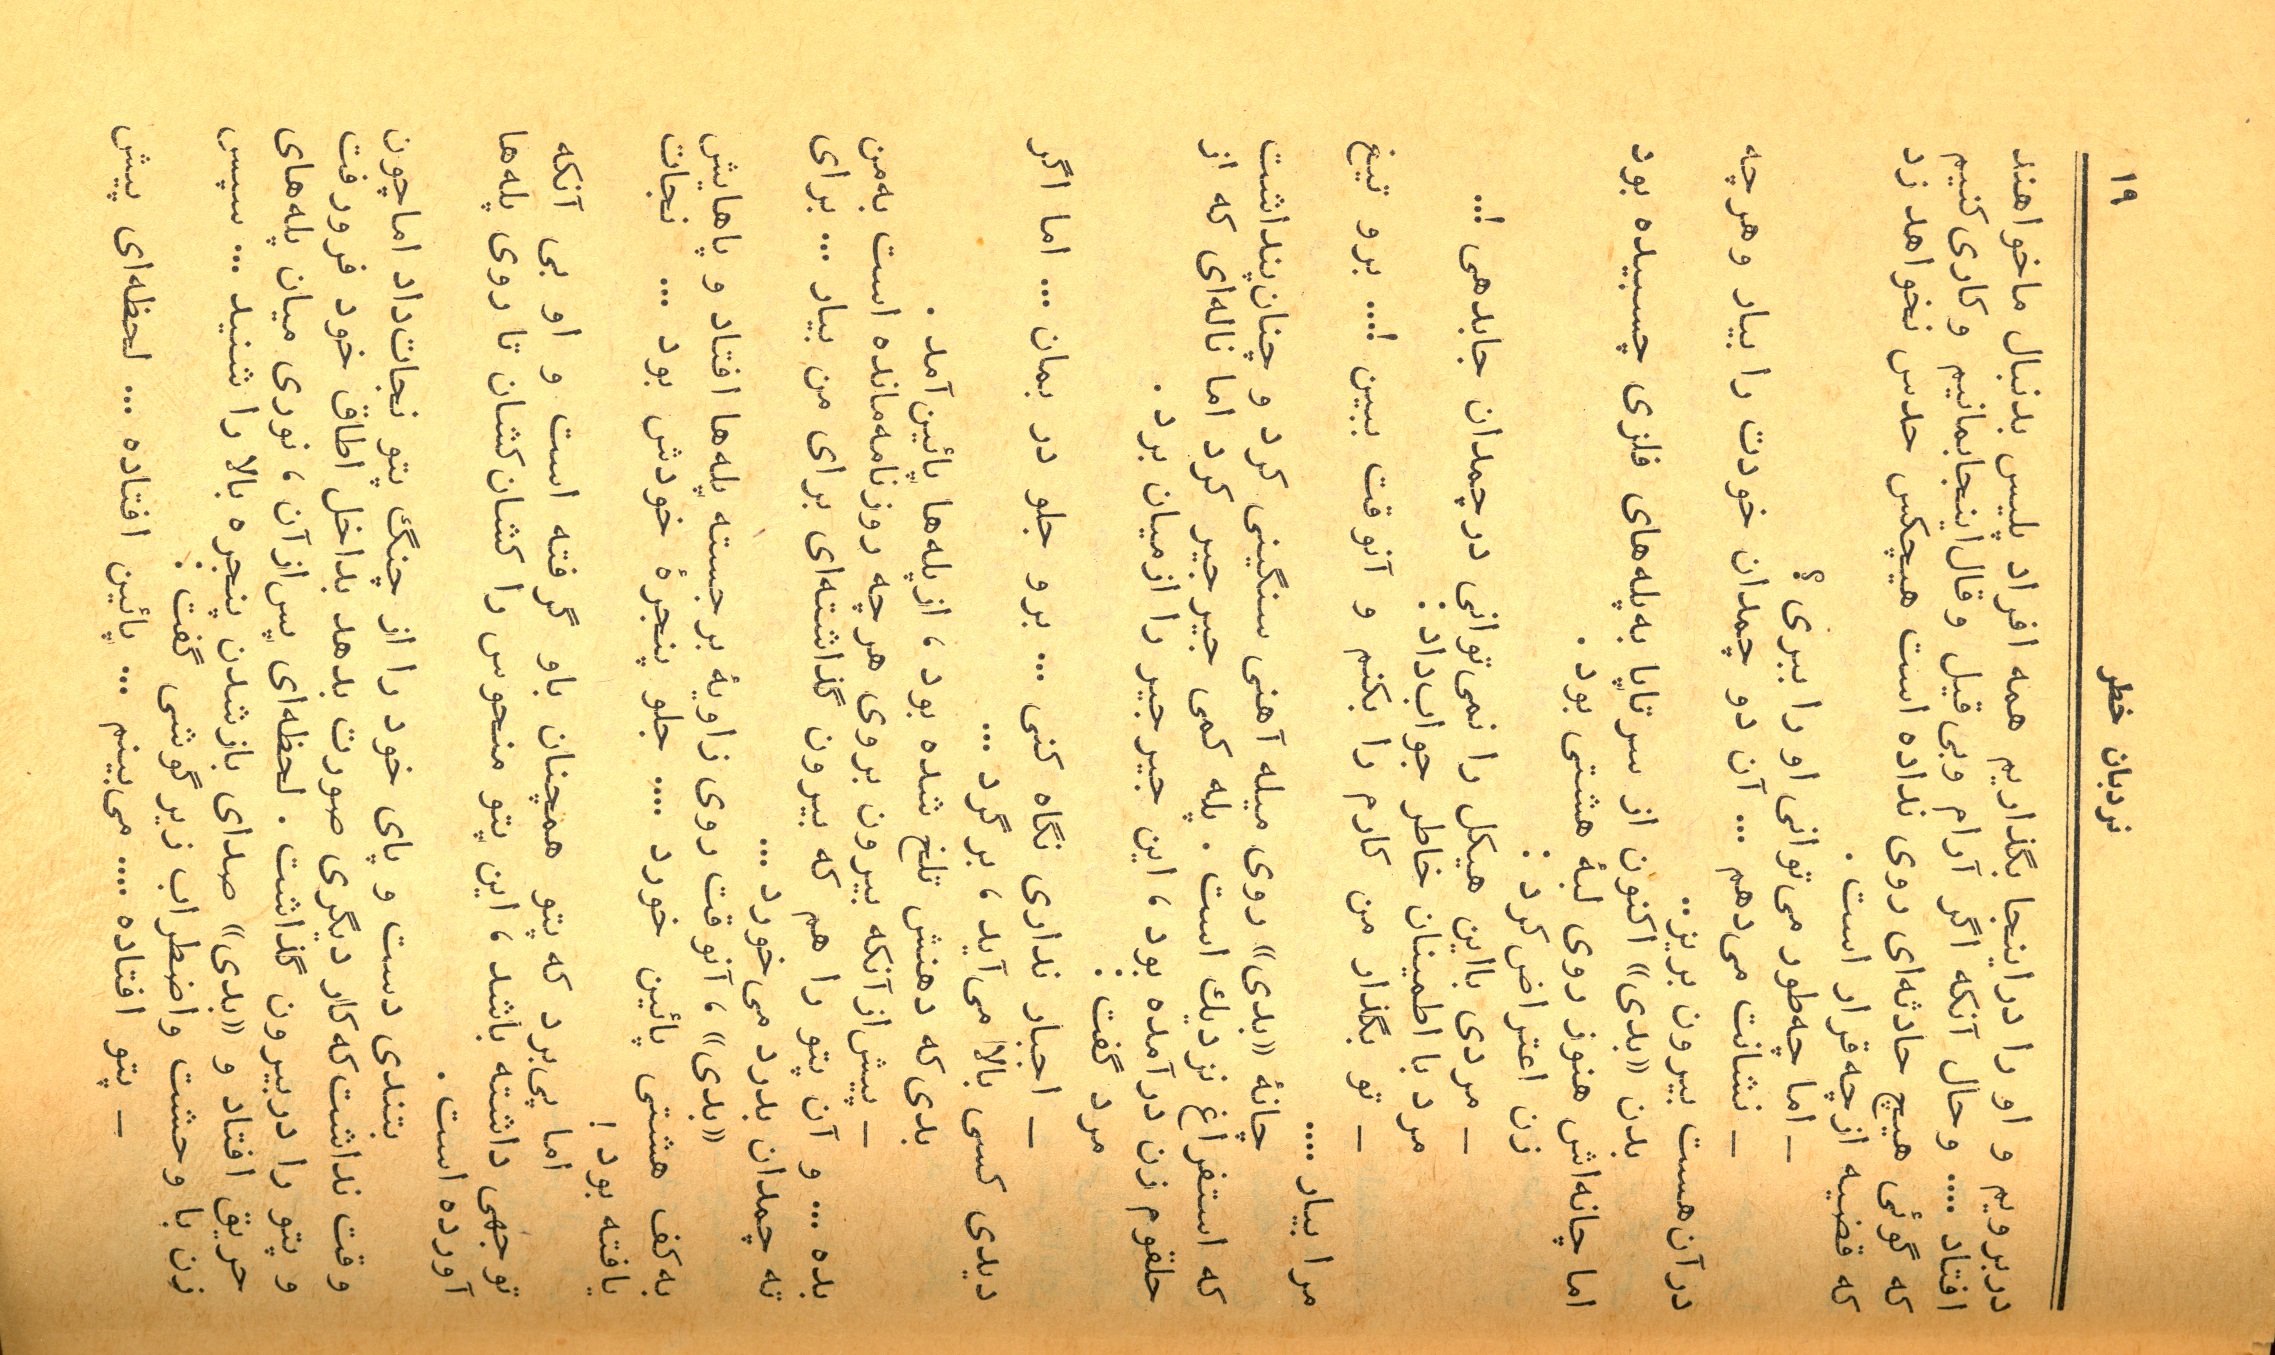 ۱۹
نردبان خطر
دربرویم و او را دراینجا بگذاریم همه افراد پلیس بدنبال ماخواهند
افتاد .... وحال آنکه اگر آرام وبی‌قیل وقال‌اینجابمانیم وکاری‌کنیم
که گوئی هیچ حادثه‌ای روی نداده است هیچکس حدس نخواهد زد
که قضیه ازچه‌قرار است .
– اما چه‌طور می‌توانی او را ببری ؟
– نشانت می‌دهم ... آن دو چمدان خودت را بیار وهرچه
درآن‌هست بیرون بریز..
بدن «بدی» اکنون از سر تاپا به‌پله‌های فلزی چسبیده بود
اما چانه‌اش هنوز روی لبهٔ هشتی بود .
زن اعتراض‌کرد :
– مردی بااین هیکل را نمی‌توانی درچمدان جابدهی !..
مرد با اطمینان خاطر جواب‌داد :
– تو بگذار من کارم را بکنم و آنوقت ببین !... برو تیغ
مرا بیار ....
چانهٔ «بدی» روی میله آهنی سنگینی کرد و چنان‌پنداشت
که استفراغ نزدیك است . پله کمی جیرجیر کرد اما ناله‌ای که از
حلقوم زن درآمده بود، این جیرجیر را ازمیان برد .
مرد گفت :
– اجبار نداری نگاه کنی ... برو جلو در بمان ... اما اگر
دیدی کسی بالا می‌آید، برگرد ...
بدی‌که دهنش تلخ شده بود، ازپله‌ها پائین‌آمد .
– پیش‌ازآنکه بیرون بروی هرچه روزنامه‌مانده است به‌من
بده ... و آن پتو را هم که بیرون گذاشته‌ای برای من بیار ... برای
ته چمدان بدرد می‌خورد ...
«بدی» ، آنوقت روی زاویهٔ برجسته پله‌ها افتاد و پاهایش
به‌کف هشتی پائین خورد .... جلو پنجرهٔ خودش بود ... نجات
یافته بود !
اما پی‌برد که پتو همچنان باو گرفته است و او بی آنکه
توجهی داشته باشد، این پتو منحوس را کشان‌کشان تا روی پله‌ها
آورده است .
بتندی دست و پای خود را از چنگ پتو نجات‌داد اماچون
وقت نداشت‌که‌کار دیگری صورت بدهد بداخل اطاق خود فرورفت
و پتو را دربیرون گذاشت . لحظه‌ای پس‌ازآن، نوری میان پله‌های
حریق افتاد و «بدی» صدای بازشدن پنجره بالا را شنید ... سپس
زن با وحشت واضطراب زیرگوشی گفت :
– پتو افتاده .... می‌بینم ... پائین افتاده ... لحظه‌ای پیش